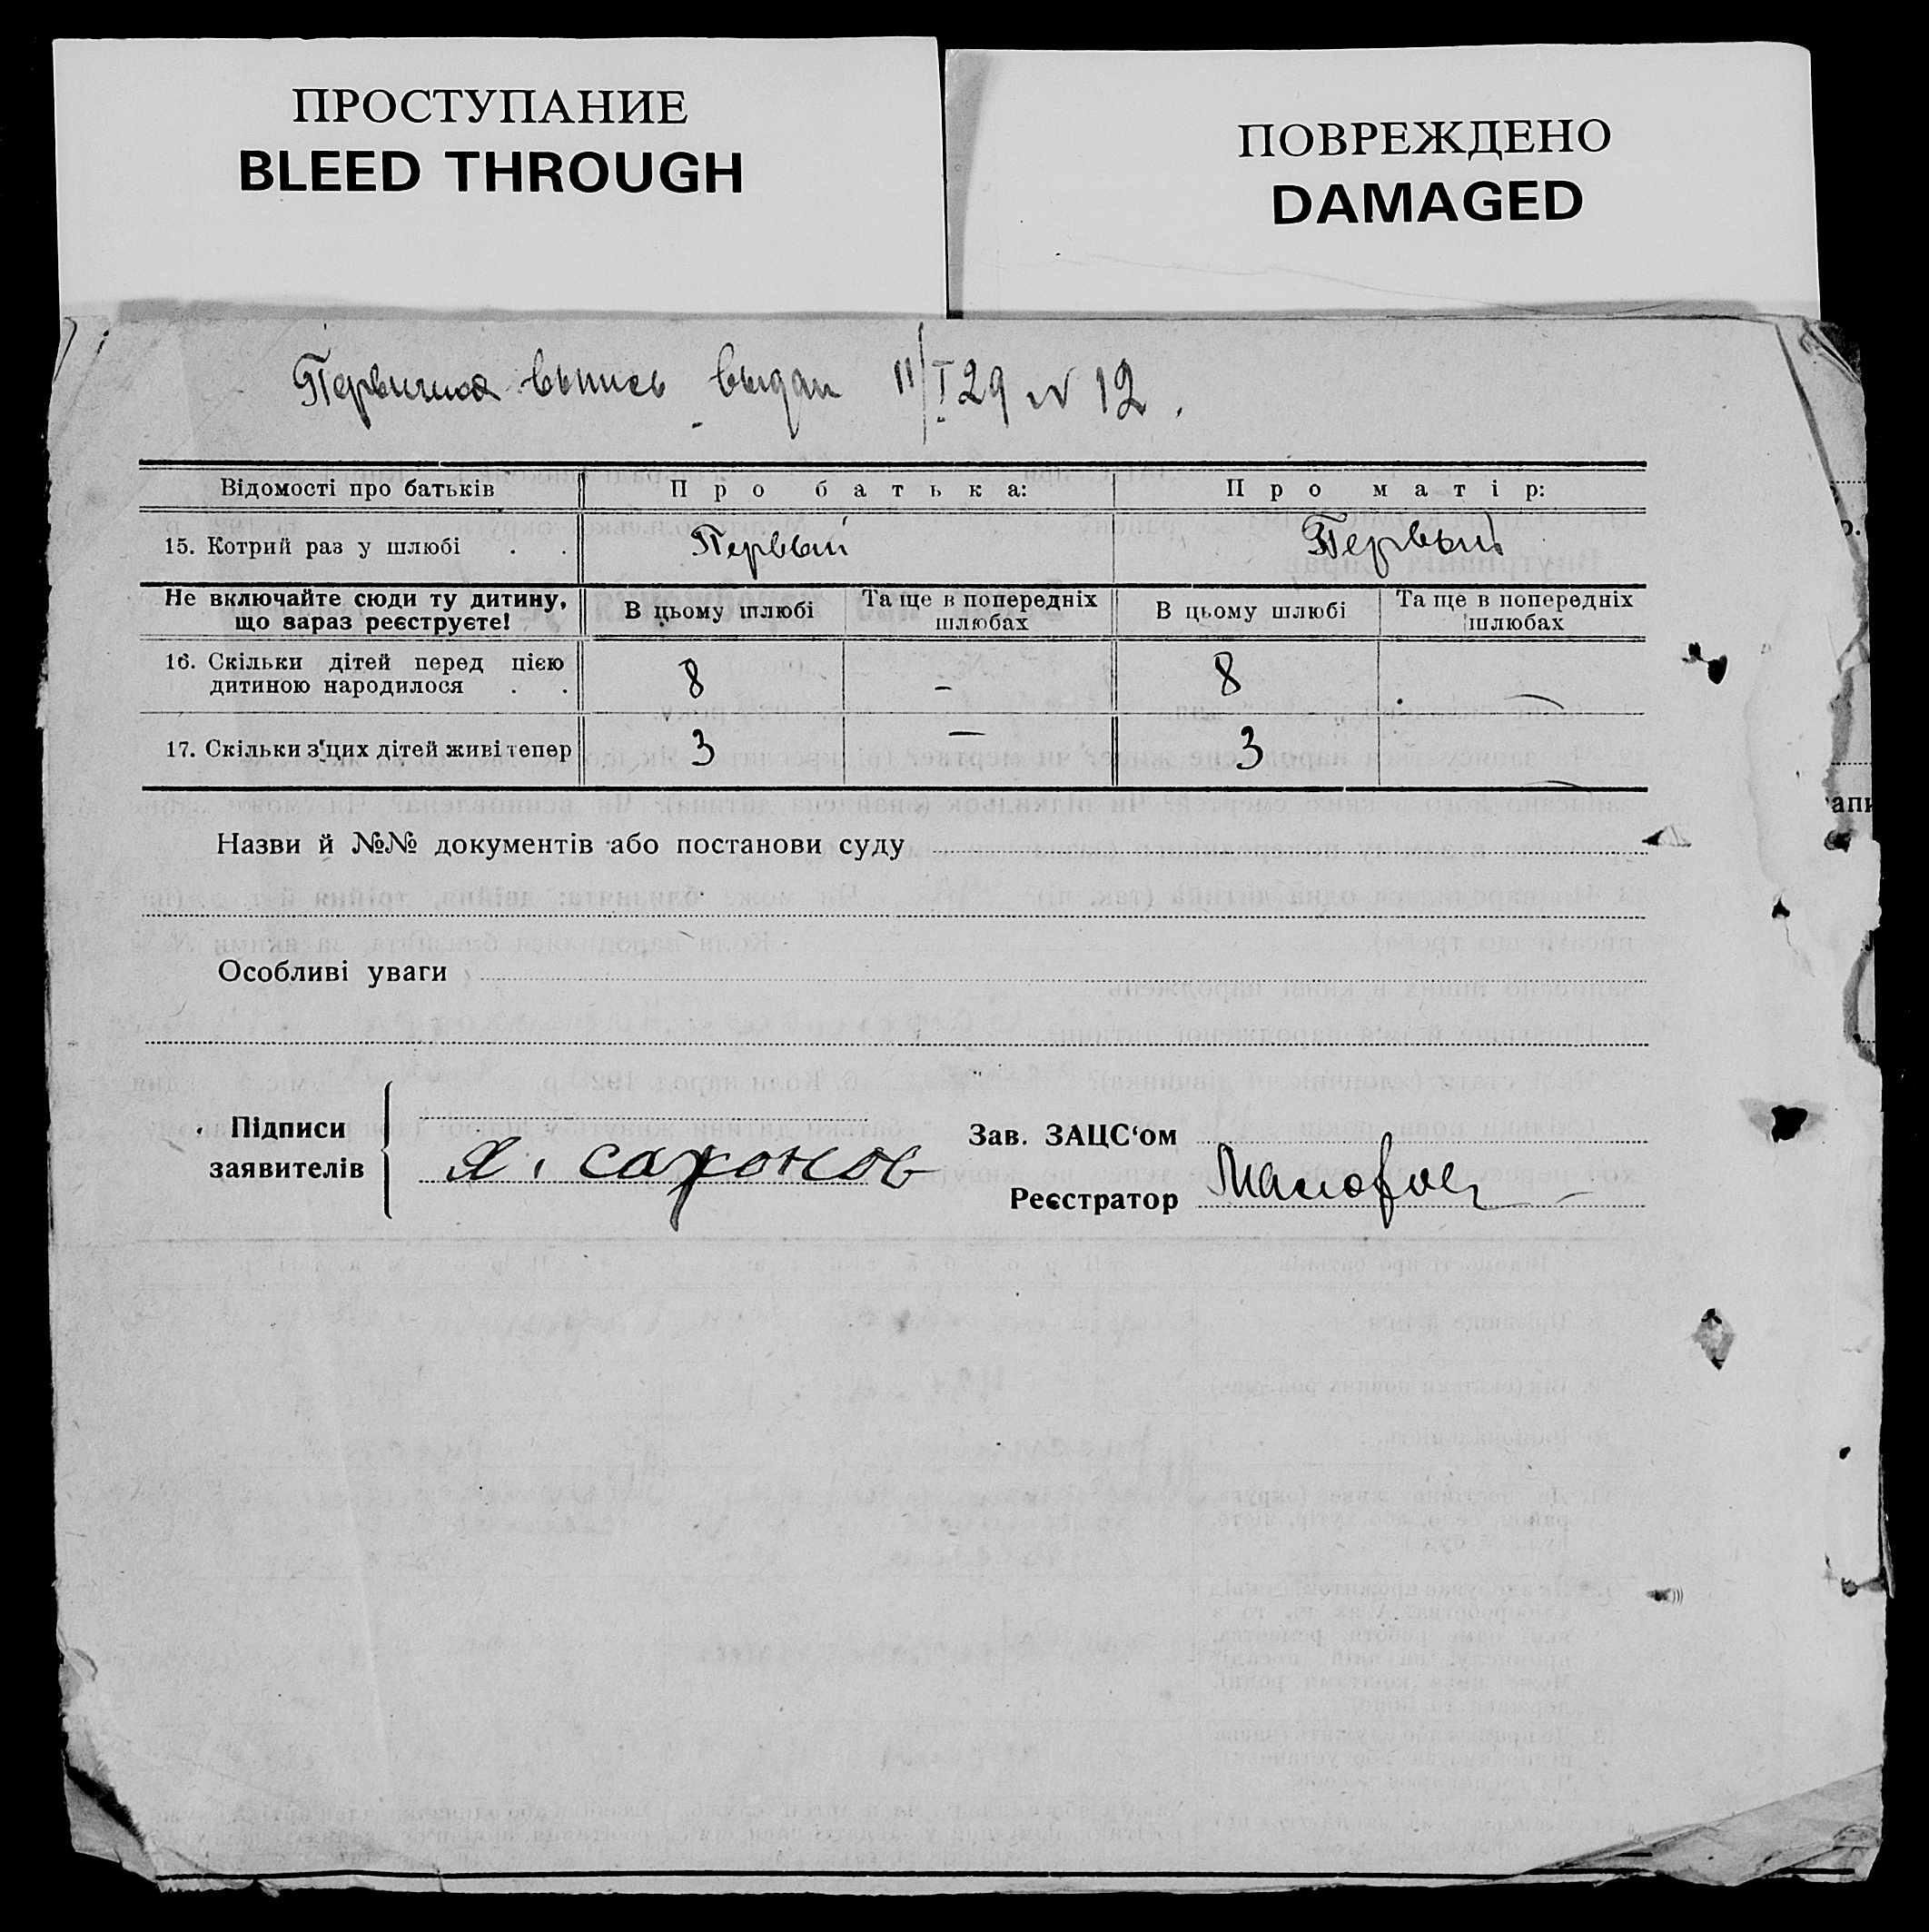 ПРОСТУПАНИЕ
BLEED THROUGH
ПОВРЕЖДЕНО
DAMAGED
Первичная выпись выдан 11/I 29 N 12.
Відомості про батьків Про батька: Про матір:
15. Котрий раз у шлюбі . . Первый Первый
Не включайте сюди ту дитину, що зараз реєструєте! В цьому шлюбі Та ще в попередніх шлюбах В цьому шлюбі Та ще в попередніх шлюбах
16. Скільки дітей перед цією дитиною народилося . . 8 – 8 —
17. Скільки з'цих дітей живі тепер 3 — 3 —
Назви й №№ документів або постанови суду
Особливі уваги
Підписи заявителів
Я. сахонов
Зав. ЗАЦС‘ом
Реєстратор